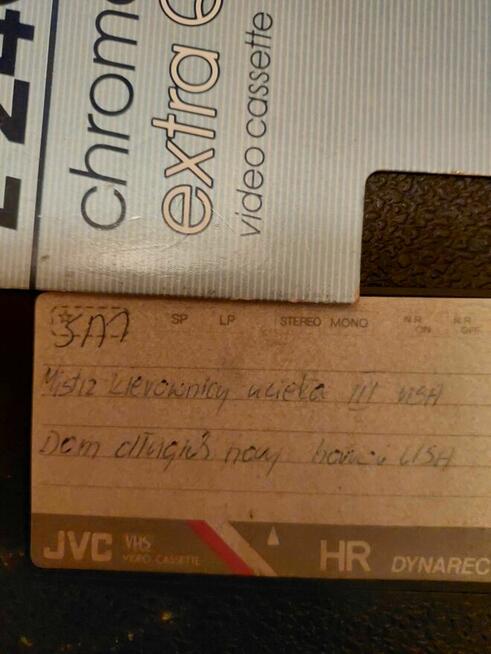 E 240
chrom
extra
video cassette
SP LP STEREO MONO N.R. ON N.R. OFF
Mistrz kierownicy ucieka III USA
Dom długich nocy horror USA
JVC VHS VIDEO CASSETTE HR DYNAREC